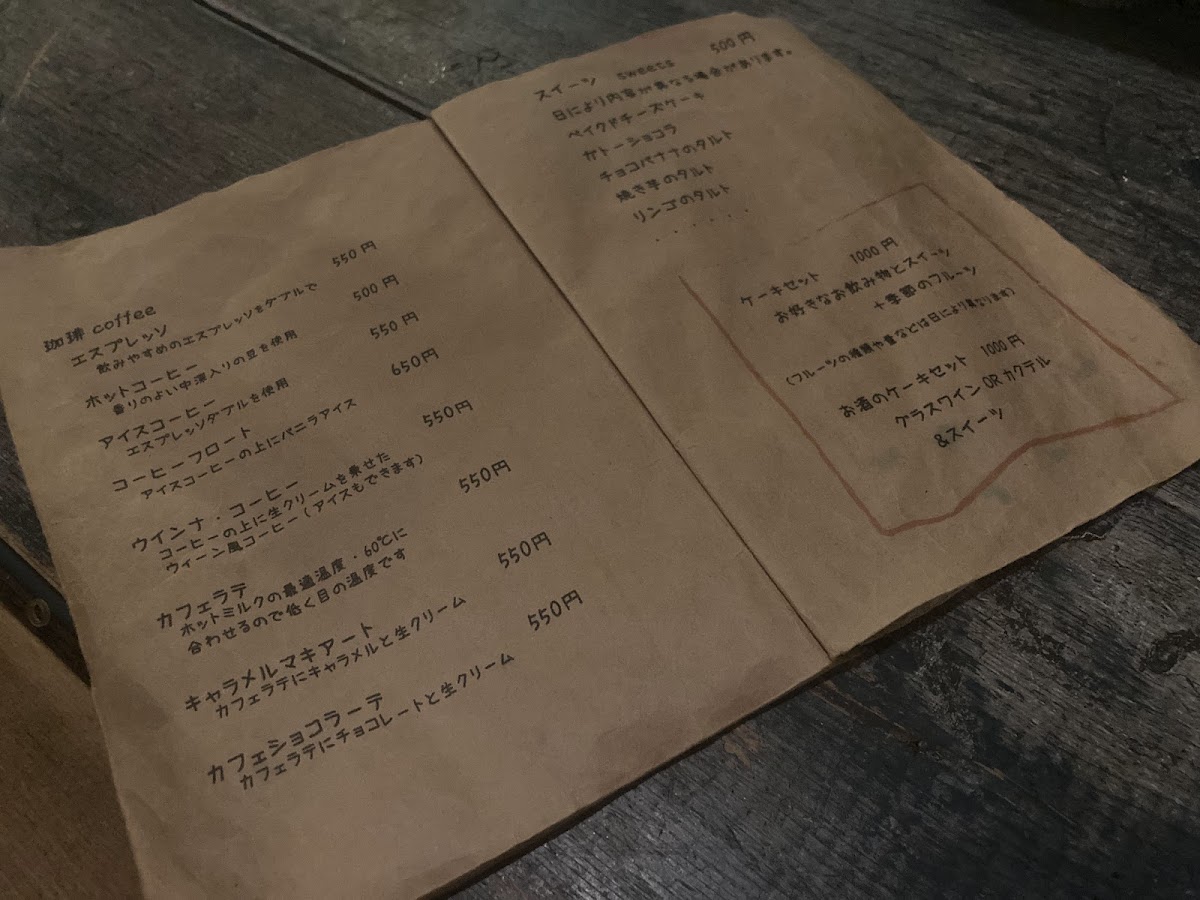 珈琲 coffee
エスプレッソ 550円
飲みやすめのエスプレッソをダブルで
ホットコーヒー 500円
香りのよい中深入りの豆を使用
アイスコーヒー 550円
エスプレッソダブルを使用
コーヒーフロート 650円
アイスコーヒーの上にバニラアイス
ウインナ・コーヒー 550円
コーヒーの上に生クリームを乗せた
ウィーン風コーヒー(アイスもできます)
カフェラテ 550円
ホットミルクの最適温度・60℃に
合わせるので低く目の温度です
キャラメルマキアート 550円
カフェラテにキャラメルと生クリーム
カフェショコラーテ 550円
カフェラテにチョコレートと生クリーム
スイーツ sweets 500円
日により内容が異なる場合があります。
ベイクドチーズケーキ
ガトーショコラ
チョコバナナのタルト
焼き芋のタルト
リンゴのタルト
・・・・・
ケーキセット 1000円
お好きなお飲み物とスイーツ
+季節のフルーツ
(フルーツの種類や量などは日により異なります)
お酒のケーキセット 1000円
グラスワインORカクテル
&スイーツ